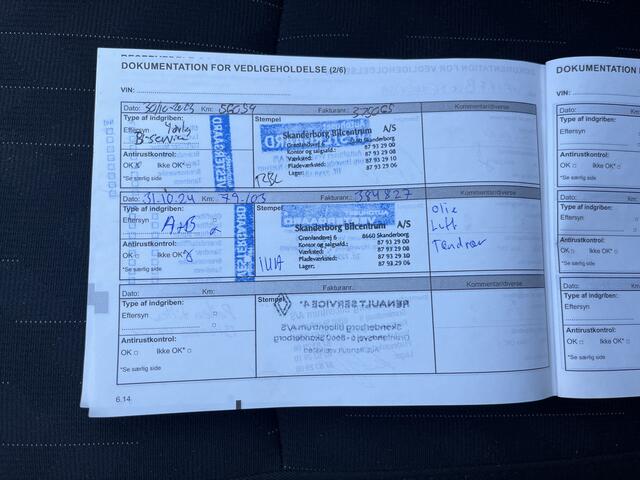 DOKUMENTATION FOR VEDLIGEHOLDELSE (2/6)
VIN:
Dato: 30/10-2023 Km: 56059 Fakturanr.: Kommentar/diverse
Type af indgriben: Stempel
Eftersyn
B-service
Antirustkontrol:
OK Ikke OK*
*Se særlig side
Skanderborg Bilcentrum A/S
Grønlandsvej 6 8660 Skanderborg
Kontor og salgsafd.: 87 93 29 00
Værksted: 87 93 29 00
Pladeværksted: 87 93 29 10
Lager: 87 93 29 06
Dato: 31.10.24 Km: 79.103 Fakturanr.: 384827 Kommentar/diverse
Type af indgriben: Stempel
Eftersyn A+B
Antirustkontrol:
OK Ikke OK*
*Se særlig side
Skanderborg Bilcentrum A/S
Grønlandsvej 6 8660 Skanderborg
Kontor og salgsafd.: 87 93 29 00
Værksted: 87 93 29 00
Pladeværksted: 87 93 29 10
Lager: 87 93 29 06
Olie
Luft
Tændrør
Dato: Km: Fakturanr.: Kommentar/diverse
Type af indgriben: Stempel
Eftersyn
Antirustkontrol:
OK Ikke OK*
*Se særlig side
6.14
DOKUMENTATION
VIN:
Dato:
Type af indgriben:
Eftersyn
Antirustkontrol:
OK Ikke OK*
*Se særlig side
Dato:
Type af indgriben:
Eftersyn
Antirustkontrol:
OK Ikke OK*
*Se særlig side
Dato:
Type af indgriben:
Eftersyn
Antirustkontrol:
OK Ikke OK*
*Se særlig side